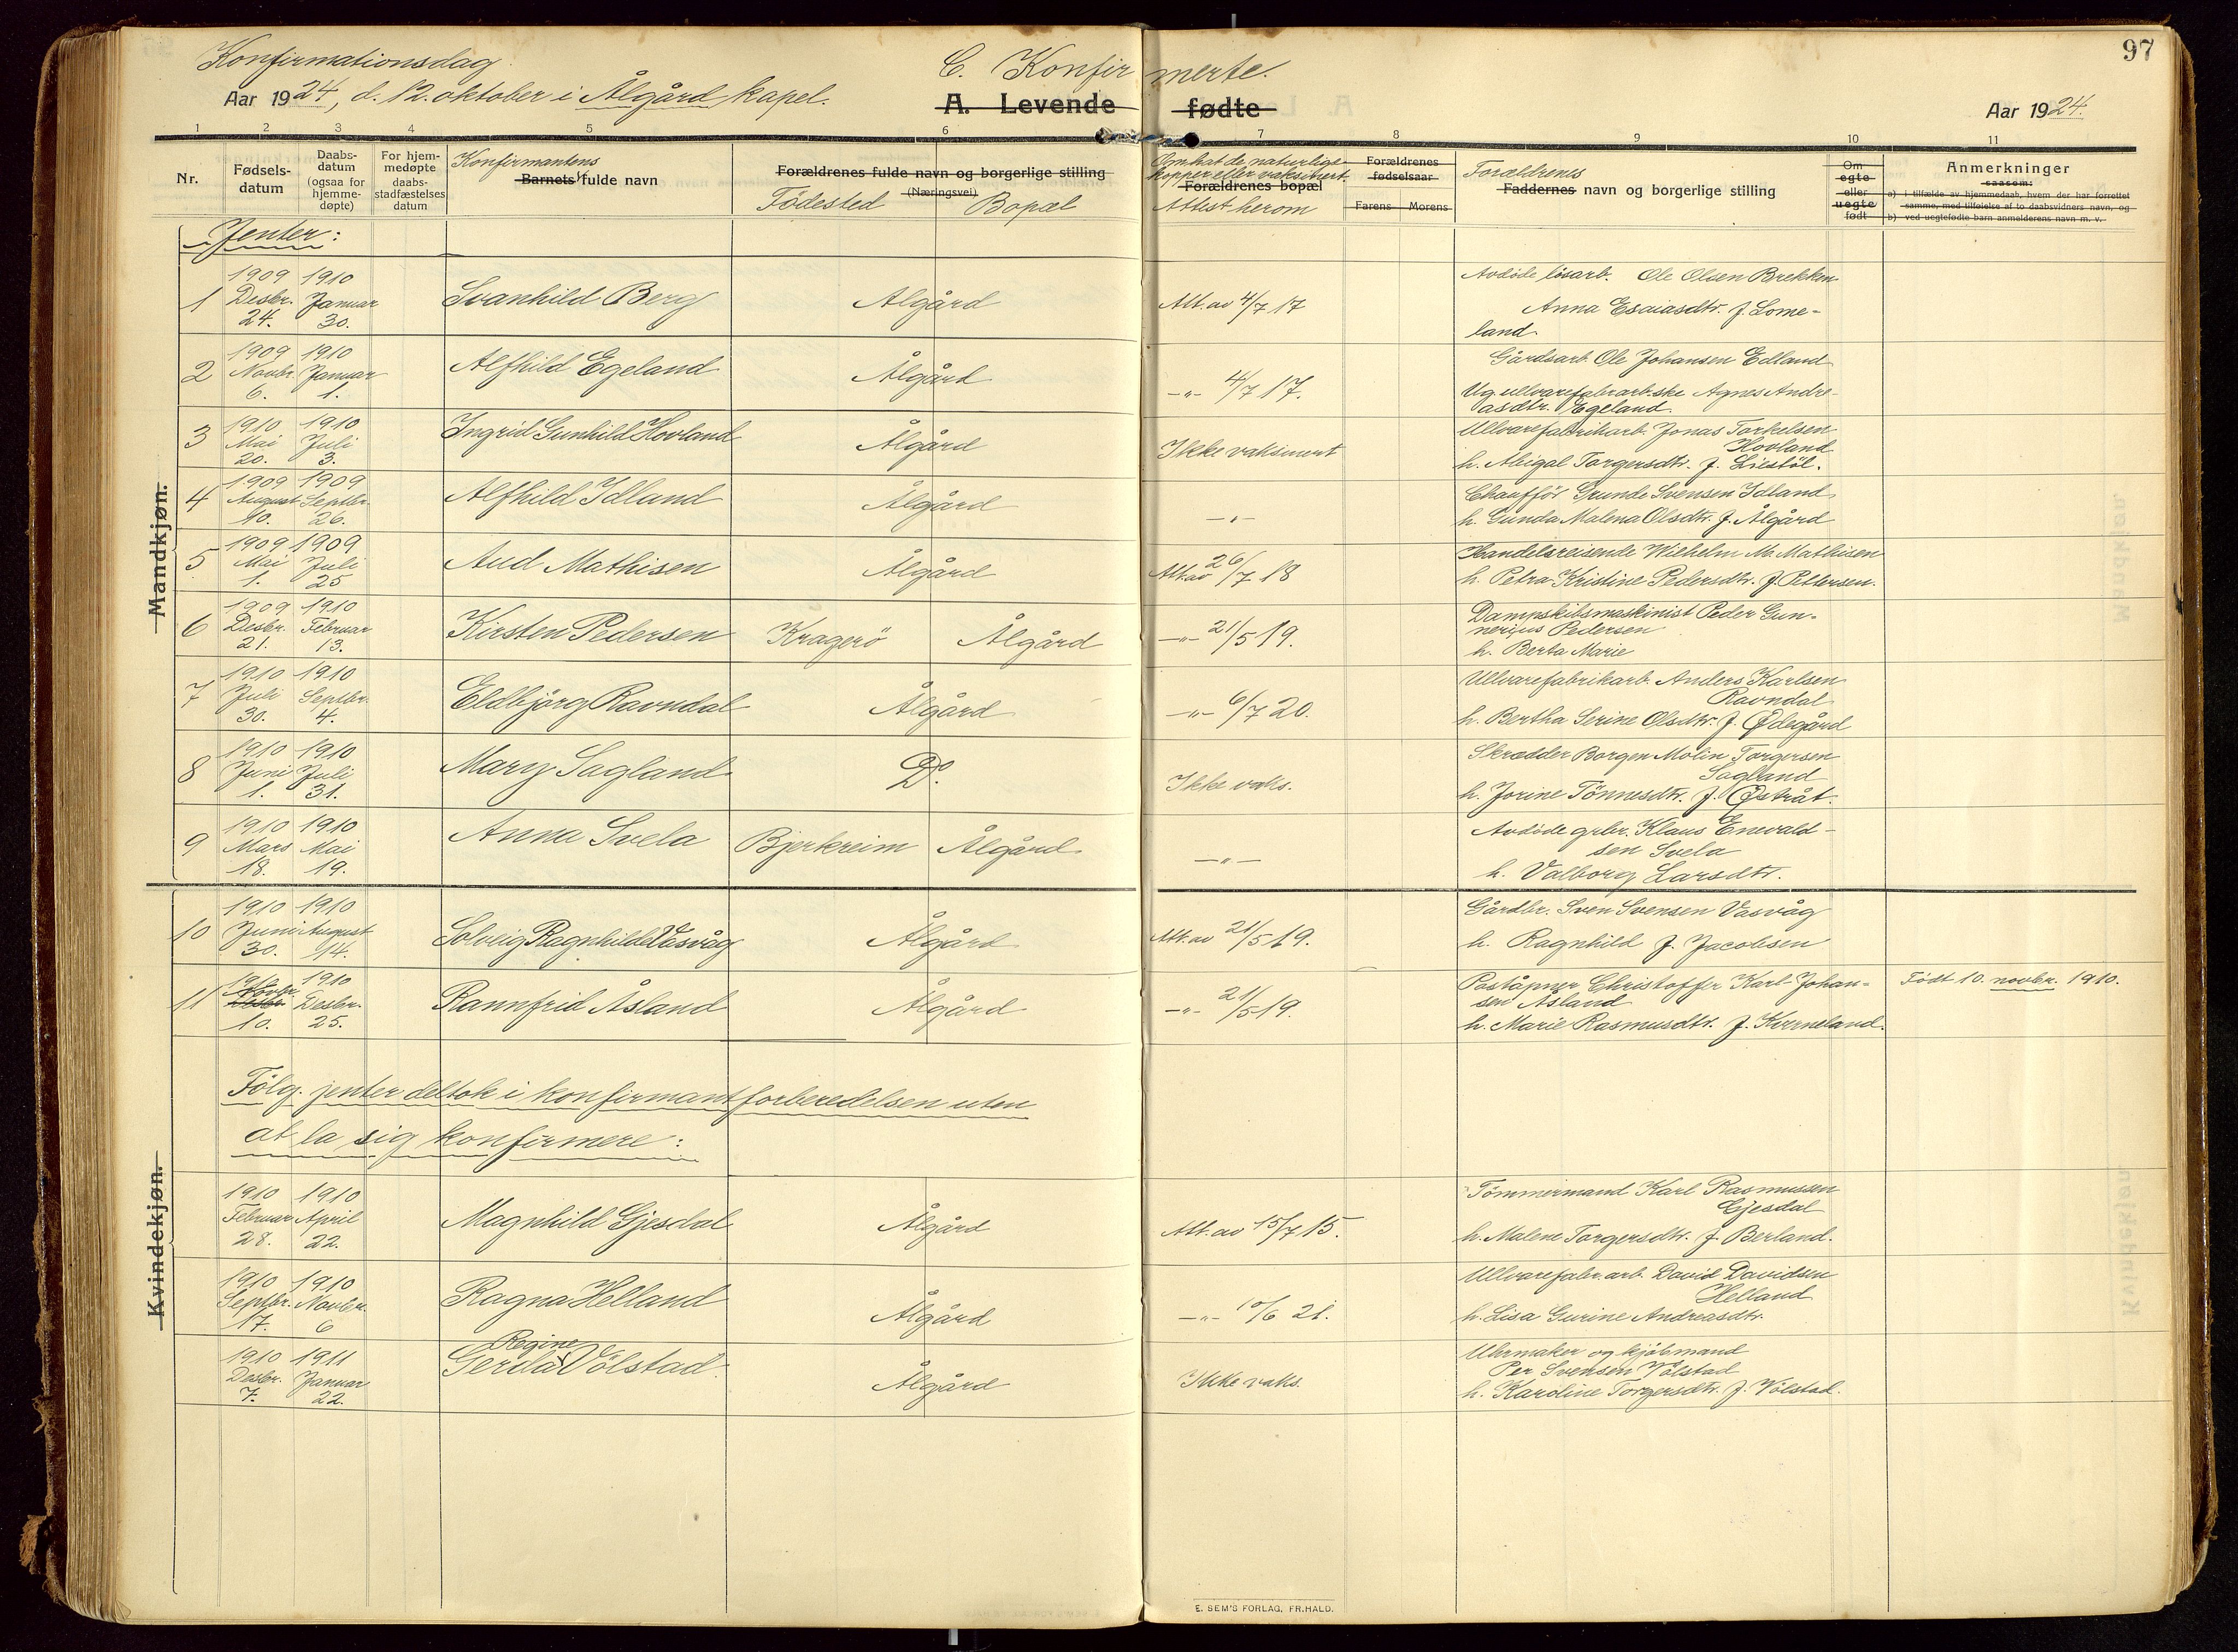 97
Konfirmationsdag
C. Konfirmerte.
Aar 1924, d. 12. oktober i Ålgård kapel.
A. Levende fødte
Aar 1924.
1 2 3 4 5 6 7 8 9 10 11
Nr.
Fødselsdatum
Daabsdatum (ogsaa for hjemmedøpte)
For hjemmedøpte daabsstadfæstelses datum
Konfirmantens
Barnets fulde navn
Forældrenes fulde navn og borgerlige stilling
(Næringsvei)
Fødested Bopæl
Om hat de naturlige kopper eller vaksinert.
Forældrenes bopæl
Attest herom
Forældrenes fødselsaar
Farens Morens
Forældrenes
Faddernes navn og borgerlige stilling
Om egte eller uegte født
Anmerkninger
saasom:
a) i tilfælde av hjemmedaab, hvem der har forrettet samme, med tilføielse af to daabsvidners navn, og
b) ved uegtefødte barn anmelderens navn m. v.
Mandkjøn.
Jenter:
1 1909 Desbr. 24. 1910 Januar 30. Svanhild Berg Ålgård Att. av 4/7 17 Avdøde løsarb. Ole Olsen Brekken
Anna Esaiasdtr. f. Lomeland
2 1909 Novbr. 6. 1910 Januar 1. Alfhild Egeland Ålgård -"- 4/7 17. Gårdsarb. Ole Johansen Edland
Ug. ullvarefabrarb.ske Agnes Andreasdtr. Egeland.
3 1910 Mai 20. 1910 Juli 3. Ingrid Gunhild Hovland Ålgård Ikke vaksinert Ullvarefabrikarb. Jonas Torkelsen Hovland
h. Abigal Torgersdtr. f. Liestöl.
4 1909 August 10. 1909 Septbr. 26. Alfhild Idland Ålgård -"- Chaufför Grunde Svensen Idland
h. Gunda Malena Olsdtr. f. Ålgård
5 1909 Mai 1. 1909 Juli 25 Aud Mathisen Ålgård Att. av 26/7 18 Handelsreisende Wilhelm M. Mathisen
h. Petra Kristine Pedersdtr. f. Pettersen.
6 1909 Desbr. 21. 1910 Februar 13. Kirsten Pedersen Kragerö Ålgård -"- 21/5 19. Dampskibsmaskinist Peder Gunnerius Pedersen
h. Berta Marie
7 1910 Juli 30. 1910 Septbr. 4. Eldbjörg Ravndal Ålgård -"- 6/7 20. Ullvarefabrikarb. Anders Karlsen Ravndal
h. Bertha Serine Olsdtr. f. Ødegård
8 1910 Juni 1. 1910 Juli 31. Mary Sagland Do. Ikke vaks. Skrædder Borgen Molin Torgersen Sagland
h. Jorine Tönnesdtr. f. Østråt.
9 1910 Mars 18. 1910 Mai 19. Anna Svela Bjerkreim Ålgård. -"- Avdöde grbr. Klaus Enevaldsen Svela
h. Valborg Larsdtr.
Kvindekjøn.
10 1910 Juni 30. 1910 August 14. Solveig Ragnhild Vasvåg Ålgård Att. av 21/5 19. Gårdbr. Sven Svensen Vasvåg
h. Ragnhild f. Jacobsen
11 1910 Novbr. Desbr. 10. 1910 Desbr. 25. Rannfrid Åsland Ålgård -"- 21/5 19. Poståpner Christoffer Karl Johansen Åsland
h. Marie Rasmusdtr. f. Kverneland. Födt 10. novbr. 1910.
Fölg. jenter deltok i konfirmantforberedelsen uten
at la sig konfirmere:
1910 Februar 28. 1910 April 22. Magnhild Gjesdal Ålgård Att. av 15/7 15. Tömmermand Karl Rasmussen Gjesdal
h. Malene Torgersdtr. f. Berland.
1910 Septbr. 17. 1910 Novbr. 6 Ragna Helland Ålgård -"- 10/6 21. Ullvarefabr.arb. David Davidsen Helland
h. Lisa Gurine Andreasdtr.
1910 Desbr. 7. 1911 Januar 22. Gerda Regine Völstad. Ålgård Ikke vaks. Uhrmaker og kjöbmand
Per Svensen Völstad
h. Karoline Torgersdtr. f. Völstad.
E. SEM'S FORLAG, FR.HALD.